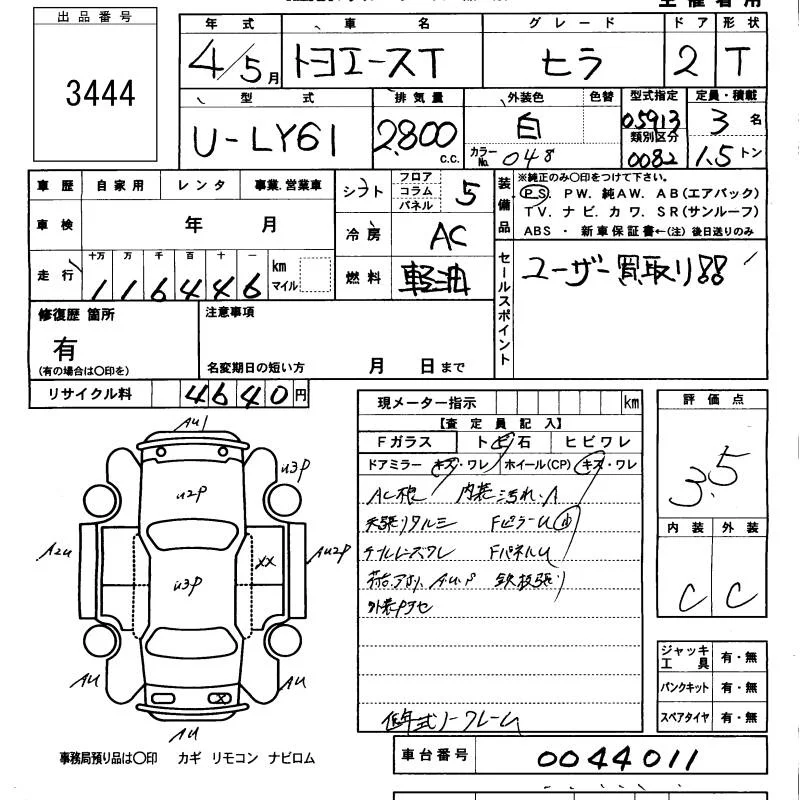 主催者用
出品番号
3444
年式 車名 グレード ドア 形状
4/5月 トヨエースT ヒラ 2 T
型式 排気量 外装色 色替 型式指定 定員・積載
U-LY61 2,800 C.C. 白 05913 3名
カラーNo. 048 類別区分 0082 1.5トン
車歴 自家用 レンタ 事業.営業車
シフト フロア コラム パネル 5
装備品
※純正のみ〇印をつけて下さい。
P S. P W. 純AW. A B(エアバック)
T V. ナ ビ. カ ワ. S R(サンルーフ)
ABS ・ 新車保証書←(注) 後日送りのみ
車検 年 月
冷房 AC
走行 十万 万 千 百 十 一
116446 km マイル
燃料 軽油
セールスポイント
ユーザー買取り!!
修復歴 箇所
有
(有の場合は〇印を)
注意事項
名変期日の短い方 月 日まで
リサイクル料 4640円
現メーター指示 km
【査定員記入】
Fガラス トビ石 ヒビワレ
ドアミラー キズ・ワレ ホイール(CP) キズ・ワレ
内装汚れ.A
天張リタルミ FピラーU
FパネルU
鉄板張り
低年式ノークレーム
評価点
3.5
内装 外装
C C
AU1
U2P
U3P
A2U
XX
AU2P
U3P
AU
AU
X
AU
ジャッキ工具 有・無
パンクキット 有・無
スペアタイヤ 有・無
事務局預り品は〇印 カギ リモコン ナビロム
車台番号 0044011